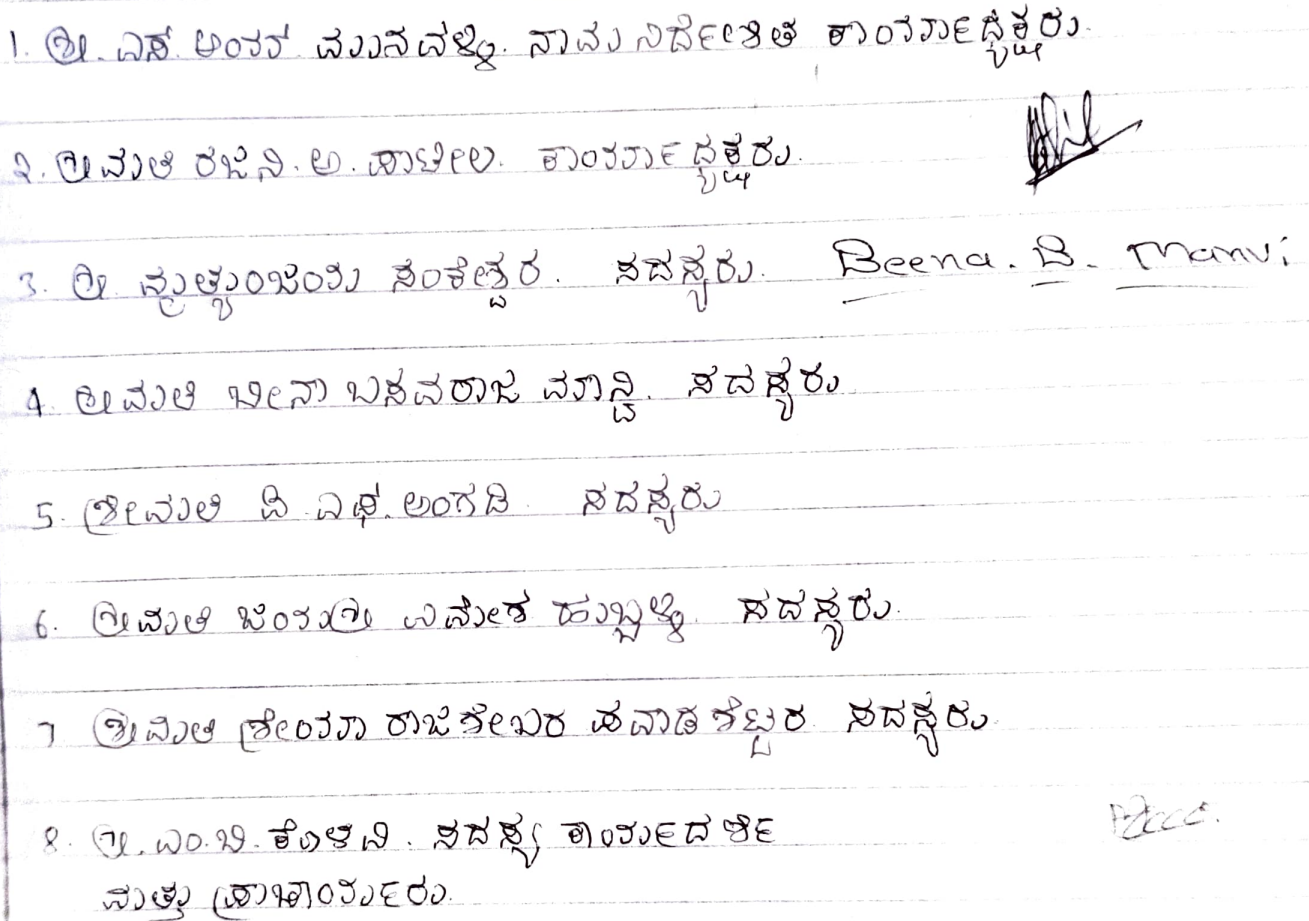 1. ಶ್ರೀ. ಎಸ್. ಅಂತರ್ ಮಾನವಳ್ಳಿ. ನಾಮ ನಿರ್ದೇಶಿತ ಕಾರ್ಯಾಧ್ಯಕ್ಷರು.
2. ಶ್ರೀಮತಿ ರಜನಿ. ಅ. ಪಾಟೀಲ. ಕಾರ್ಯಾಧ್ಯಕ್ಷರು.
3. ಶ್ರೀ ಮೃತ್ಯುಂಜಯ ಸಂಕೇಶ್ವರ. ಸದಸ್ಯರು. Beena. B. Manvi
4. ಶ್ರೀಮತಿ ಬೀನಾ ಬಸವರಾಜ ಮಾನ್ವಿ. ಸದಸ್ಯರು
5. ಶ್ರೀಮತಿ ಡಿ. ಎಫ್. ಅಂಗಡಿ. ಸದಸ್ಯರು
6. ಶ್ರೀಮತಿ ಜಯಶ್ರೀ ವಿನೋಶ ಹುಬ್ಬಳ್ಳಿ ಸದಸ್ಯರು.
7 ಶ್ರೀಮತಿ ಶ್ರೇಯಾ ರಾಜಶೇಖರ ಪವಾಡಶೆಟ್ಟರ ಸದಸ್ಯರು.
8. ಶ್ರೀ. ಎಂ. ಬಿ. ಕೊಳವಿ. ಸದಸ್ಯ ಕಾರ್ಯದರ್ಶಿ
ಮತ್ತು ಪ್ರಾಚಾರ್ಯರು.